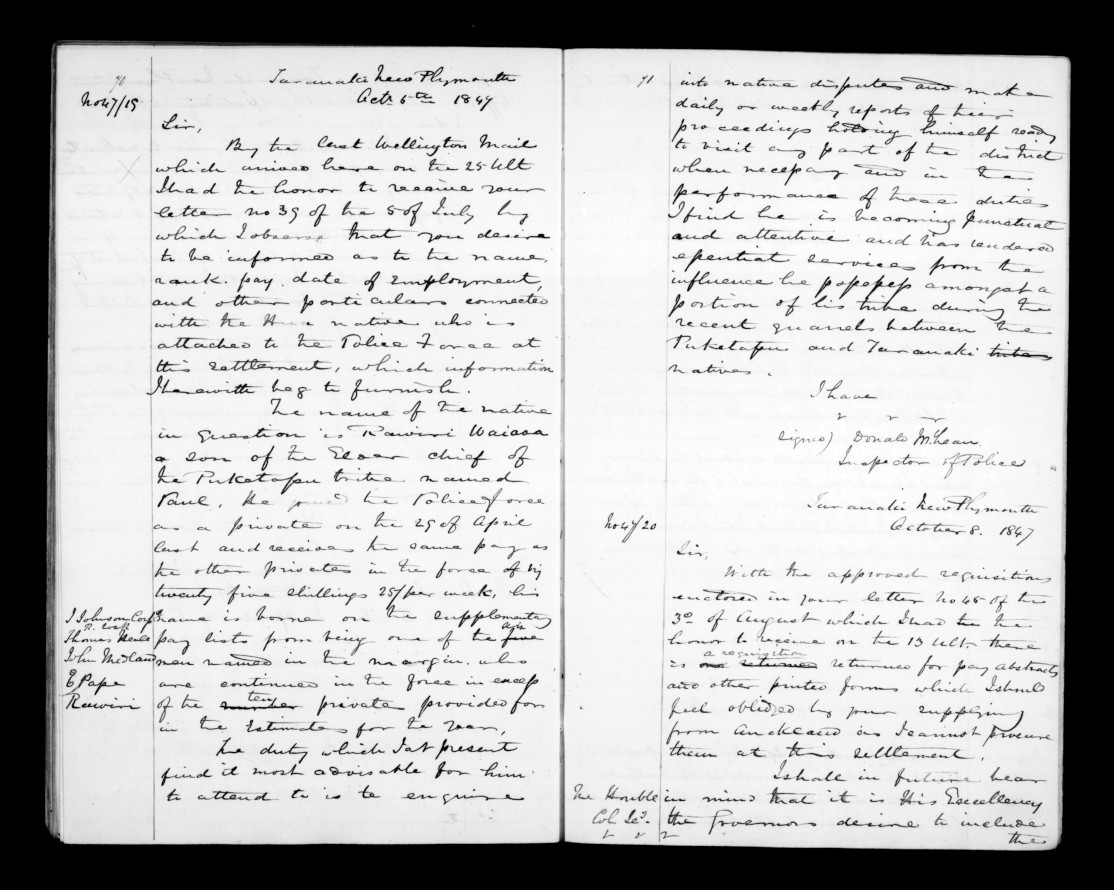 70
Taranaki New Plymouth
No 47/19
Octr 6th 1847
Sir,
By the last Wellington Mail
which arrived here on the 25 Ult
I had the honor to receive your
letter no 39 of the 5 of July by
which I observe that you desire
to be informed as to the name,
rank, pay, date of employment,
and other particulars connected
with the native who is
attached to the Police Force at
this settlement, which information
I herewith beg to furnish.
The name of the native
in question is Rawiri Waiaua
a son of the Elder chief of
the Puketapu tribe named
Paul, He joined the Police force
as a private on the 29 of April
last and receives the same pay as
the other privates in the force of
twenty five shillings 25/ per week, his
name is borne on the supplementary
pay lists from being one of the five
men named in the margin. who
are continued in the force in excess
of the number ten private provided for
in the Estimates for the Year,
The duty which I at present
find it most advisable for him
to attend to is to enquire
J Johnson Corpl
Thomas
John Medland
E Pape
Rawiri
71
into native disputes and make
daily or weekly reports of their
proceedings holding himself ready
to visit any part of the district
when necessary and in the
performance of these duties
I find he is becoming punctual
and attentive and has rendered
essential services from the
influence he possesses amongst a
portion of his tribe during the
recent quarrels between the
Puketapu and Taranaki tribes
natives.
I have
signed) Donald McLean
Inspector of Police
Taranaki New Plymouth
No 47/20
October 8. 1847
Sir,
With the approved requisitions
enclosed in your letter No 45 of the
3d of August which I had the
honor to receive on the 13 Ult. there
a requisition
is one returned returned for pay abstracts
and other printed forms which I should
feel obliged by your supplying
from Auckland as I cannot procure
them at this settlement.
I shall in future bear
in mind that it is His Excellency
the Governors desire to include
the
The Honble
Col Secy.